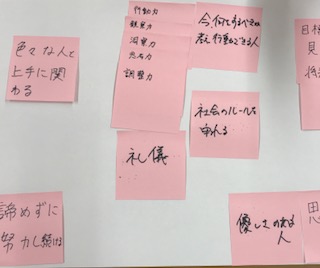 色々な人と
上手に関
わる
行動力
観察力
洞察力
忍耐力
調整力
今何をすべきか
考え行動できる人
社会のルールを
守れる
礼儀
諦めずに
努力し続ける
優しさのある
人
目標
見